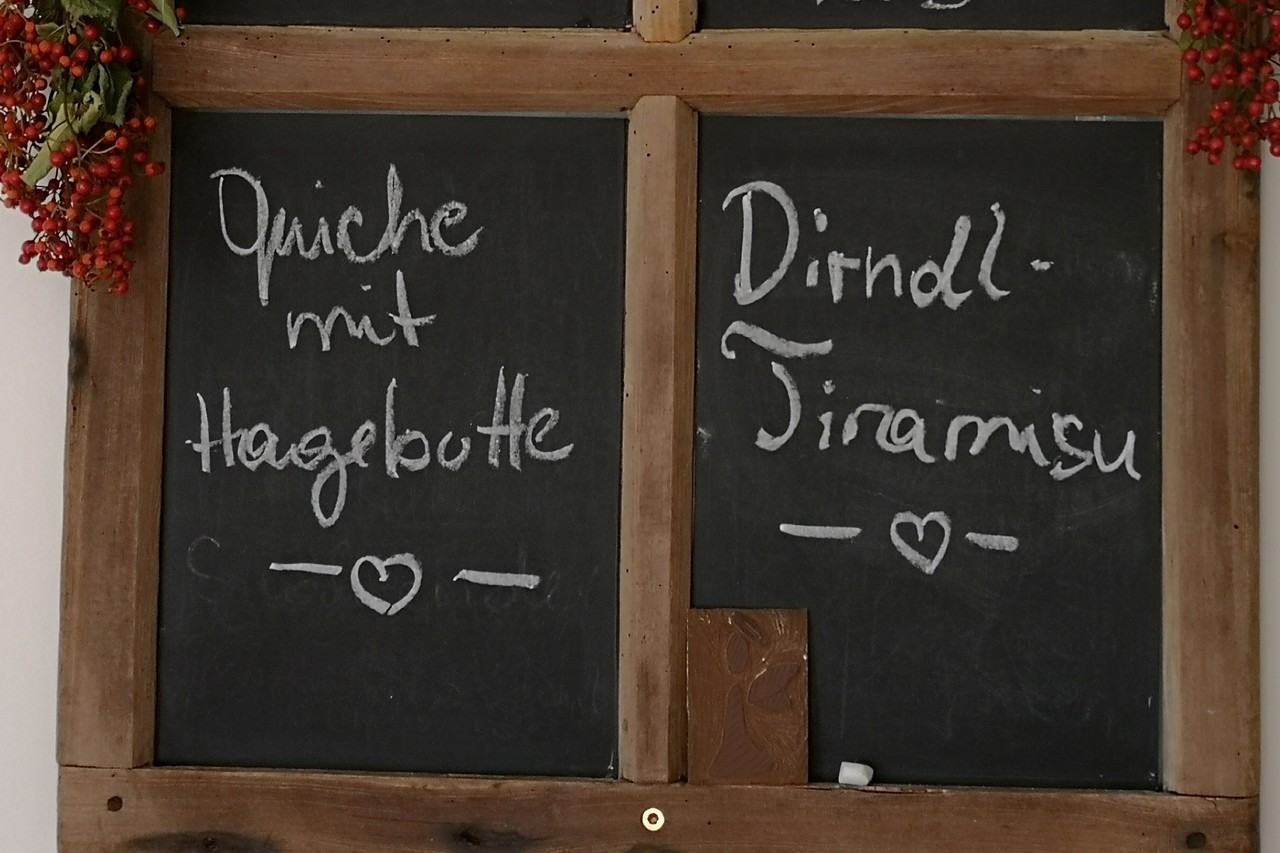 Quiche
mit
Hagebutte
Dirndl-
Tiramisu